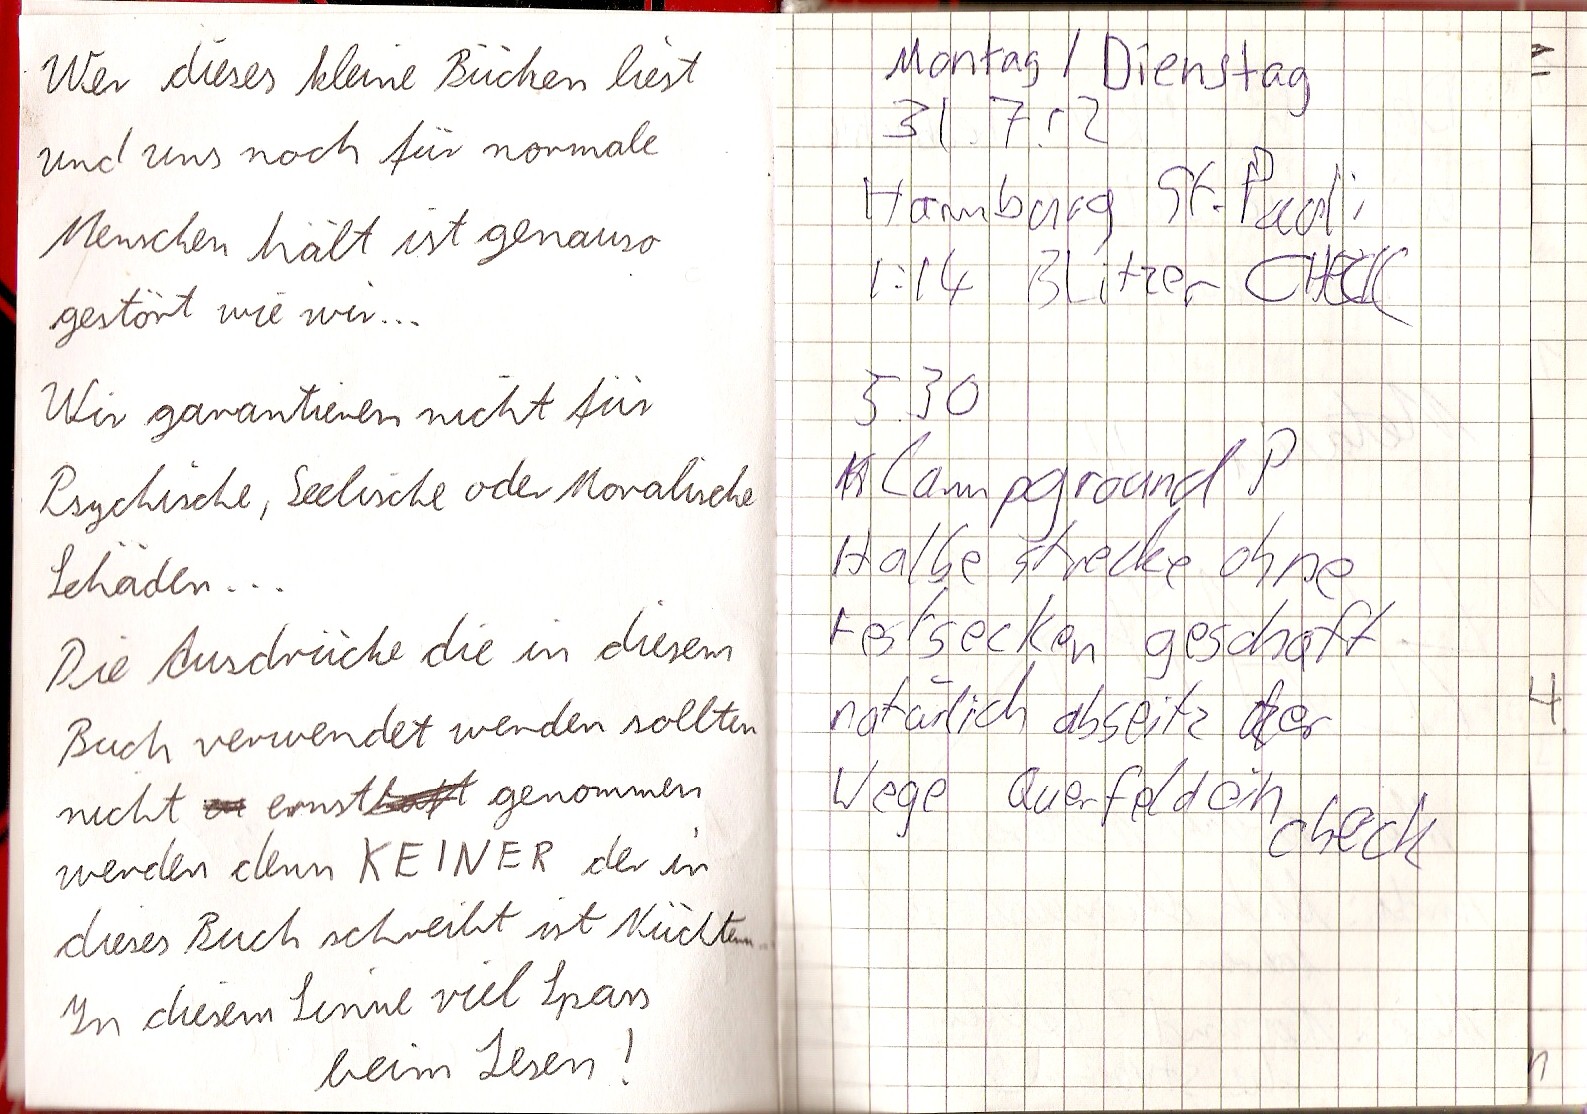 Wer dieses kleine Bücken liest
und uns noch für normale
Menschen hält ist genauso
gestört wie wir...
Wir garantieren nicht für
Psychische, Seelische oder Moralische
Schäden...
Die Ausdrücke die in diesem
Buch verwendet werden sollten
nicht ernst genommen
werden denn KEINER der in
dieses Buch schreibt ist Nüchtern...
In diesem Sinne viel Spass
beim Lesen!
Montag / Dienstag
31.7.
Hamburg St. Pauli
1:14 Blitzer CHECK
5.30
Campground P
Halbe strecke ohne
Festsecken geschaft
natürlich abseitz der
Wege Querfeldein
check
4
n